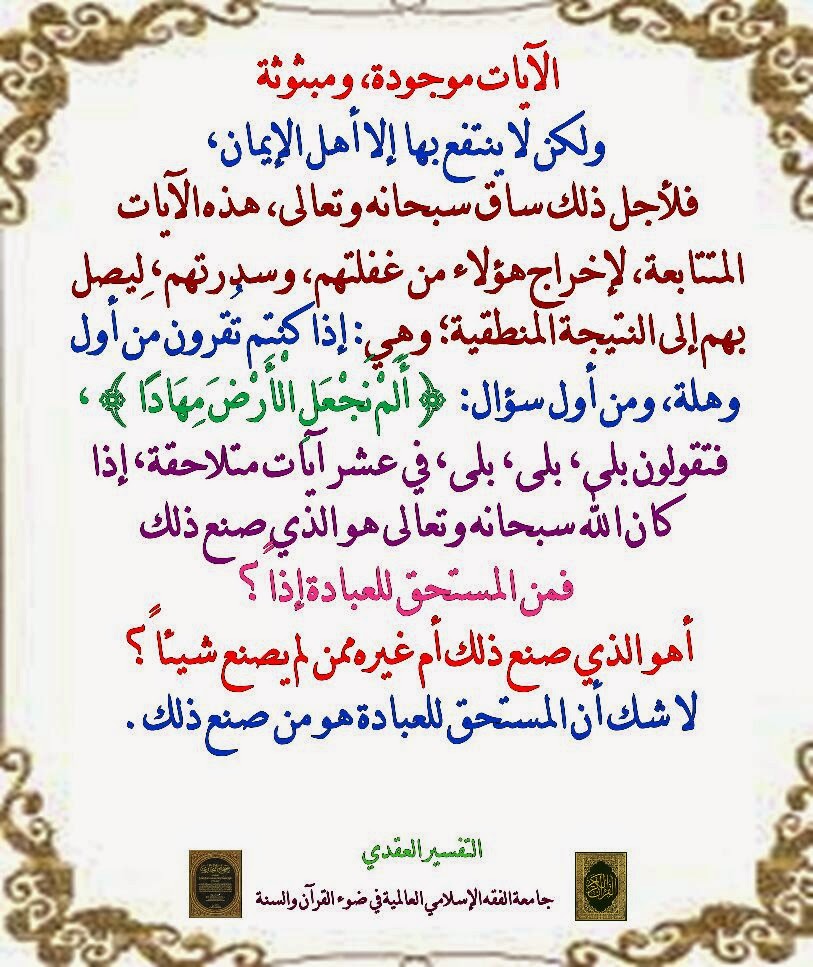 الآيات موجودة، ومبثوثة
ولكن لا ينتفع بها إلا أهل الإيمان،
فلأجل ذلك ساق سبحانه وتعالى، هذه الآيات
المتتابعة، لإخراج هؤلاء من غفلتهم، وسدرتهم، لِيصل
بهم إلى النتيجة المنطقية؛ وهي: إذا كنتم تُقرون من أول
وهلة، ومن أول سؤال: ﴿ أَلَمْ نَجْعَلِ الْأَرْضَ مِهَادًا ﴾،
فتقولون بلى، بلى، بلى، في عشر آيات متلاحقة، إذا
كان الله سبحانه وتعالى هو الذي صنع ذلك
فمن المستحق للعبادة إذاً ؟
أهو الذي صنع ذلك أم غيره ممن لم يصنع شيئاً ؟
لا شك أن المستحق للعبادة هو من صنع ذلك .
التفسير العقدي
جامعة الفقه الإسلامي العالمية في ضوء القرآن والسنة